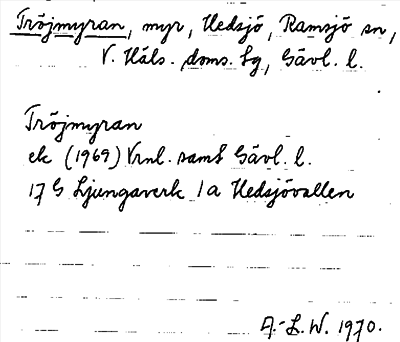 Tröjmyran, myr, Hedsjö, Ramsjö sn,
V. Häls. doms. Lg, Gävl. l.
Tröjmyran
ek (1969) Vrnl. samt Gävl. l.
17 G Ljungaverk 1a Hedsjövallen
A.-L. W. 1970.